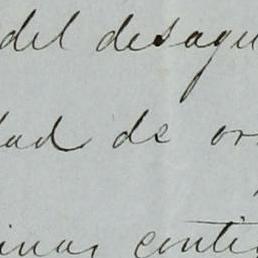 del desagu
dad de or
inas conti